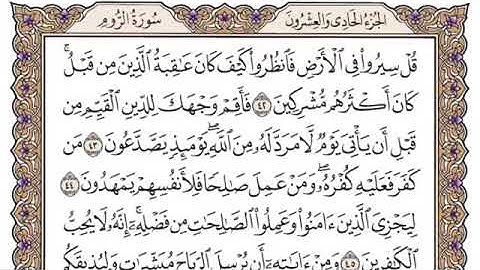 الجزء الحادي والعشرون
سورة الروم
قُلْ سِيرُوا۟ فِى ٱلْأَرْضِ فَٱنظُرُوا۟ كَيْفَ كَانَ عَٰقِبَةُ ٱلَّذِينَ مِن قَبْلُ ۚ
كَانَ أَكْثَرُهُم مُّشْرِكِينَ ٤٢ فَأَقِمْ وَجْهَكَ لِلدِّينِ ٱلْقَيِّمِ مِن
قَبْلِ أَن يَأْتِىَ يَوْمٌ لَّا مَرَدَّ لَهُۥ مِنَ ٱللَّهِ ۖ يَوْمَئِذٍ يَصَّدَّعُونَ ٤٣ مَن
كَفَرَ فَعَلَيْهِ كُفْرُهُۥ ۖ وَمَنْ عَمِلَ صَٰلِحًا فَلِأَنفُسِهِمْ يَمْهَدُونَ ٤٤
لِيَجْزِىَ ٱلَّذِينَ ءَامَنُوا۟ وَعَمِلُوا۟ ٱلصَّٰلِحَٰتِ مِن فَضْلِهِۦٓ ۚ إِنَّهُۥ لَا يُحِبُّ
ٱلْكَٰفِرِينَ ٤٥ وَمِنْ ءَايَٰتِهِۦٓ أَن يُرْسِلَ ٱلرِّيَاحَ مُبَشِّرَٰتٍ وَلِيُذِيقَكُم